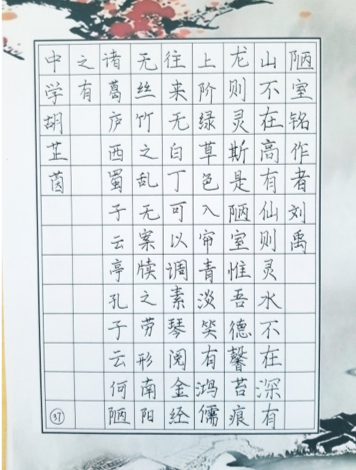 陋室铭作者刘禹
山不在高有仙则灵水不在深有
龙则灵斯是陋室惟吾德馨苔痕
上阶绿草色入帘青淡笑有鸿儒
往来无白丁可以调素琴阅金经
无丝竹之乱无案牍之劳形南阳
诸葛庐西蜀子云亭孔子云何陋
之有
中学胡芷茵
37